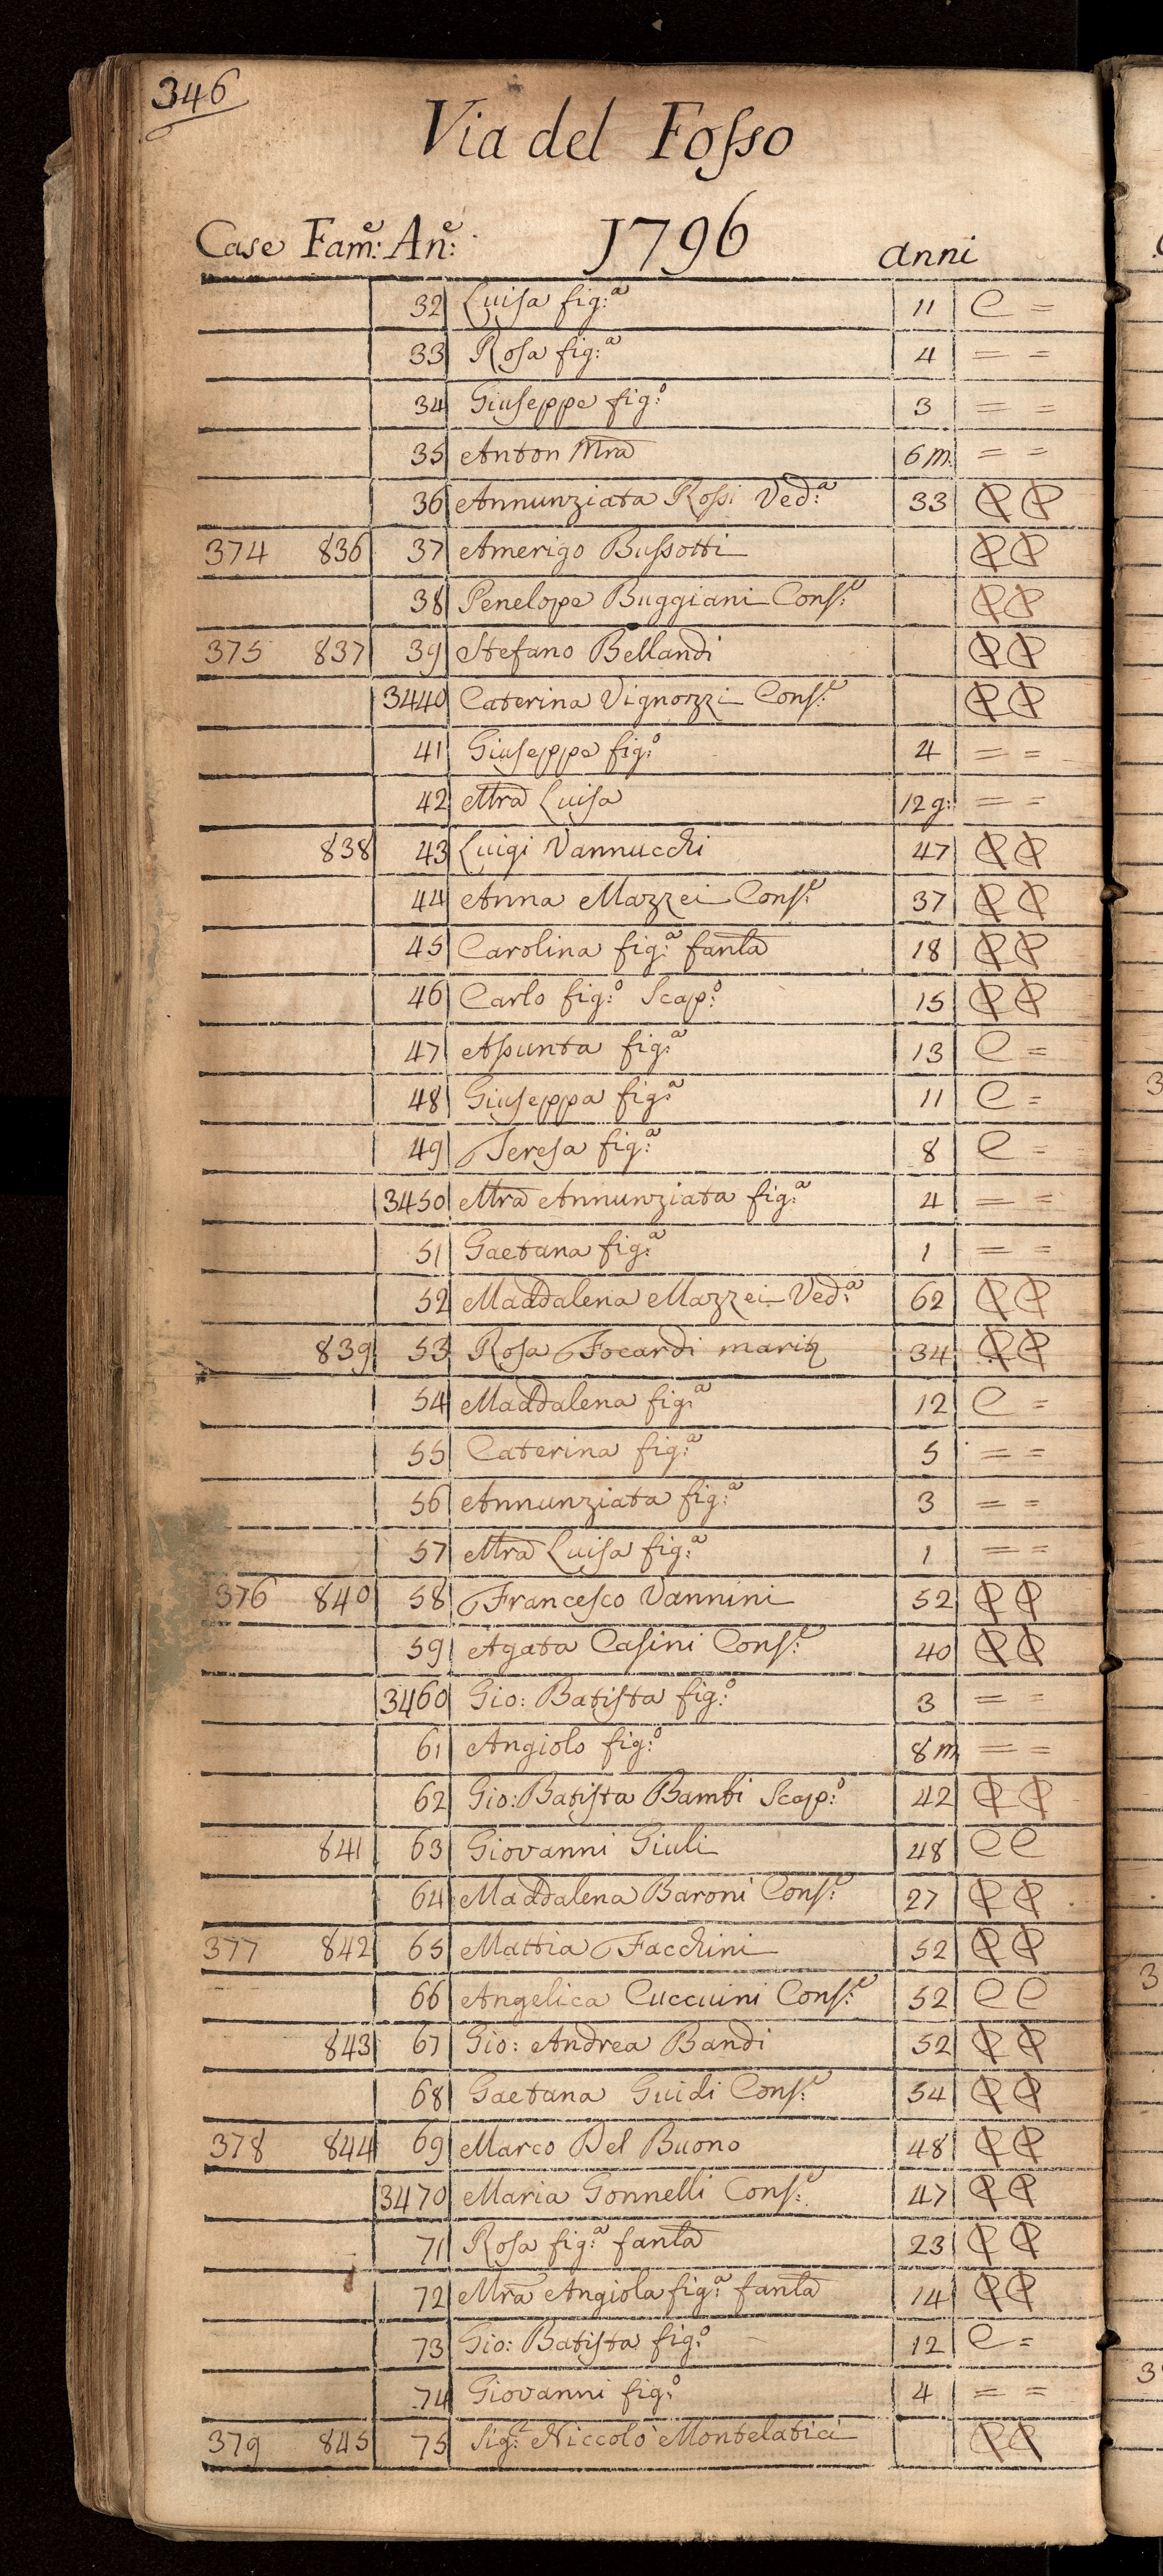 346
Via del Fosso
Case Fam:e An:e 1796 anni
32 Luisa fig:a 11 C =
33 Rosa fig:a 4 = =
34 Giuseppe fig:o 3 = =
35 Anton Mra 6 m. = =
36 Annunziata Rossi Ved:a 33
374 836 37 Amerigo Bussotti
38 Penelope Buggiani Cons:e
375 837 39 Stefano Bellandi
3440 Caterina Vignozzi Cons:e
41 Giuseppe fig:o 4 = =
42 Mra Luisa 12 g: = =
838 43 Luigi Vannucchi 47
44 Anna Mazzei Cons:e 37
45 Carolina fig:a fanla 18
46 Carlo fig:o Scap:o 15
47 Assunta fig:a 13 C =
48 Giuseppa fig:a 11 C =
49 Teresa fig:a 8 C =
3450 Mra Annunziata fig:a 4 = =
51 Gaetana fig:a 1 = =
52 Maddalena Mazzei Ved:a 62
839 53 Rosa Focardi 34
54 Maddalena fig:a 12 C =
55 Caterina fig:a 5 = =
56 Annunziata fig:a 3 = =
57 Mra Luisa fig:a 1 = =
376 840 58 Francesco Vannini 52
59 Agata Casini Cons:e 40
3460 Gio: Batista fig:o 3 = =
61 Angiolo fig:o 8 m = =
62 Gio: Batista Bambi Scap:o 42
841 63 Giovanni Giuli 48 C C
64 Maddalena Baroni Cons:e 27
377 842 65 Mattia Facchini 52
66 Angelica Cuccuini Cons:e 52 C C
843 67 Gio: Andrea Bandi 52
68 Gaetana Guidi Cons:e 54
378 844 69 Marco Del Buono 48
3470 Maria Gonnelli Cons:e 47
71 Rosa fig:a fanla 23
72 Mra Angiola fig:a fanla 14
73 Gio: Batista fig:o 12 C =
74 Giovanni fig:o 4 = =
379 845 75 Sig:r Niccolò Montelatici